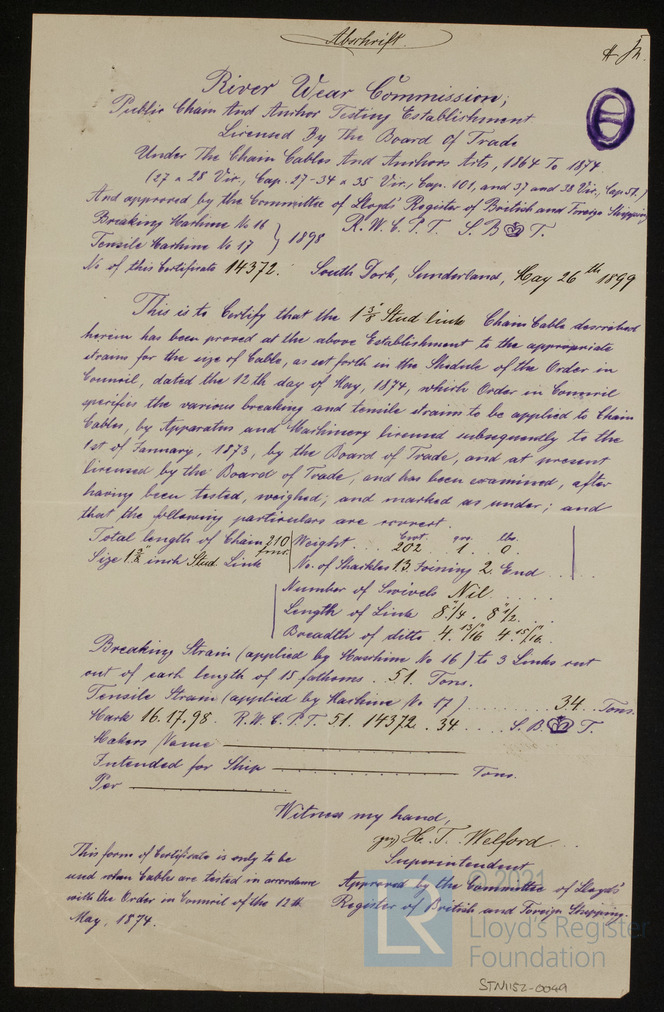 Abschrift.
River Wear Commission;
Public Chain And Anchor Testing Establishment
Licensed By The Board Of Trade
Under The Chain Cables And Anchors Acts, 1864 To 1874
(27 & 28 Vic., Cap. 27-34 & 35 Vic., Cap. 101, and 37 and 38 Vic., Cap 51.)
And approved by the Committee of Lloyd's Register of British and Foreign Shipping
Breaking Machine No 16
Tensile Machine No 17 } 1898
R. W. C. P. T. S. B T.
No of this Certificate 14372. South Dock, Sunderland, May 26th 1899
This is to Certify that the 1 3/8" Stud link Chain Cable described
herein has been proved at the above Establishment to the appropriate
strains for the size of Cable, as set forth in the Shedule of the Order in
Council, dated the 12th day of May, 1874, which Order in Council
specifies the various breaking and tensile strains to be applied to Chain
Cables, by Apparatus and Machinery licensed subsequently to the
1st of January, 1873, by the Board of Trade, and at present
licensed by the Board of Trade, and has been examined, after
having been tested, weighed; and marked as under; and
that the following particulars are correct.
Total length of Chain 210 fms.
Size 1 3/8" inch Stud Link
Cwt. qrs. lbs.
Weight . . 202 . . 1 . . 0.
No. of Shackles 13 Joining 2 End . . .
Number of Swivels Nil . . . .
Length of Link 8 1/4 . 8 1/2 . . .
Breadth of ditto 4. 13/16 4 15/16 . .
Breaking Strain (applied by Machine No 16) to 3 Links cut
out of each length of 15 fathoms . 51. Tons.
Tensile Strain (applied by Machine No 17) . . . . . . . . . 34 . . Tons.
Mark 16.17.98. R. W. C. P. T. 51. 14372 . 34 . . . . S. B. T.
Makers Name
Intended for Ship Tons.
Per
Witness my hand,
gez) H. T. Welford . . .
Superintendent
This form of Certificate is only to be
used when Cables are tested in accordance
with the Order in Council of the 12th
May, 1874.
Approved by the Committee of Lloyd's
Register of British and Foreign Shipping.
© 2021
LR
Lloyd's Register
Foundation
STN1152-0049